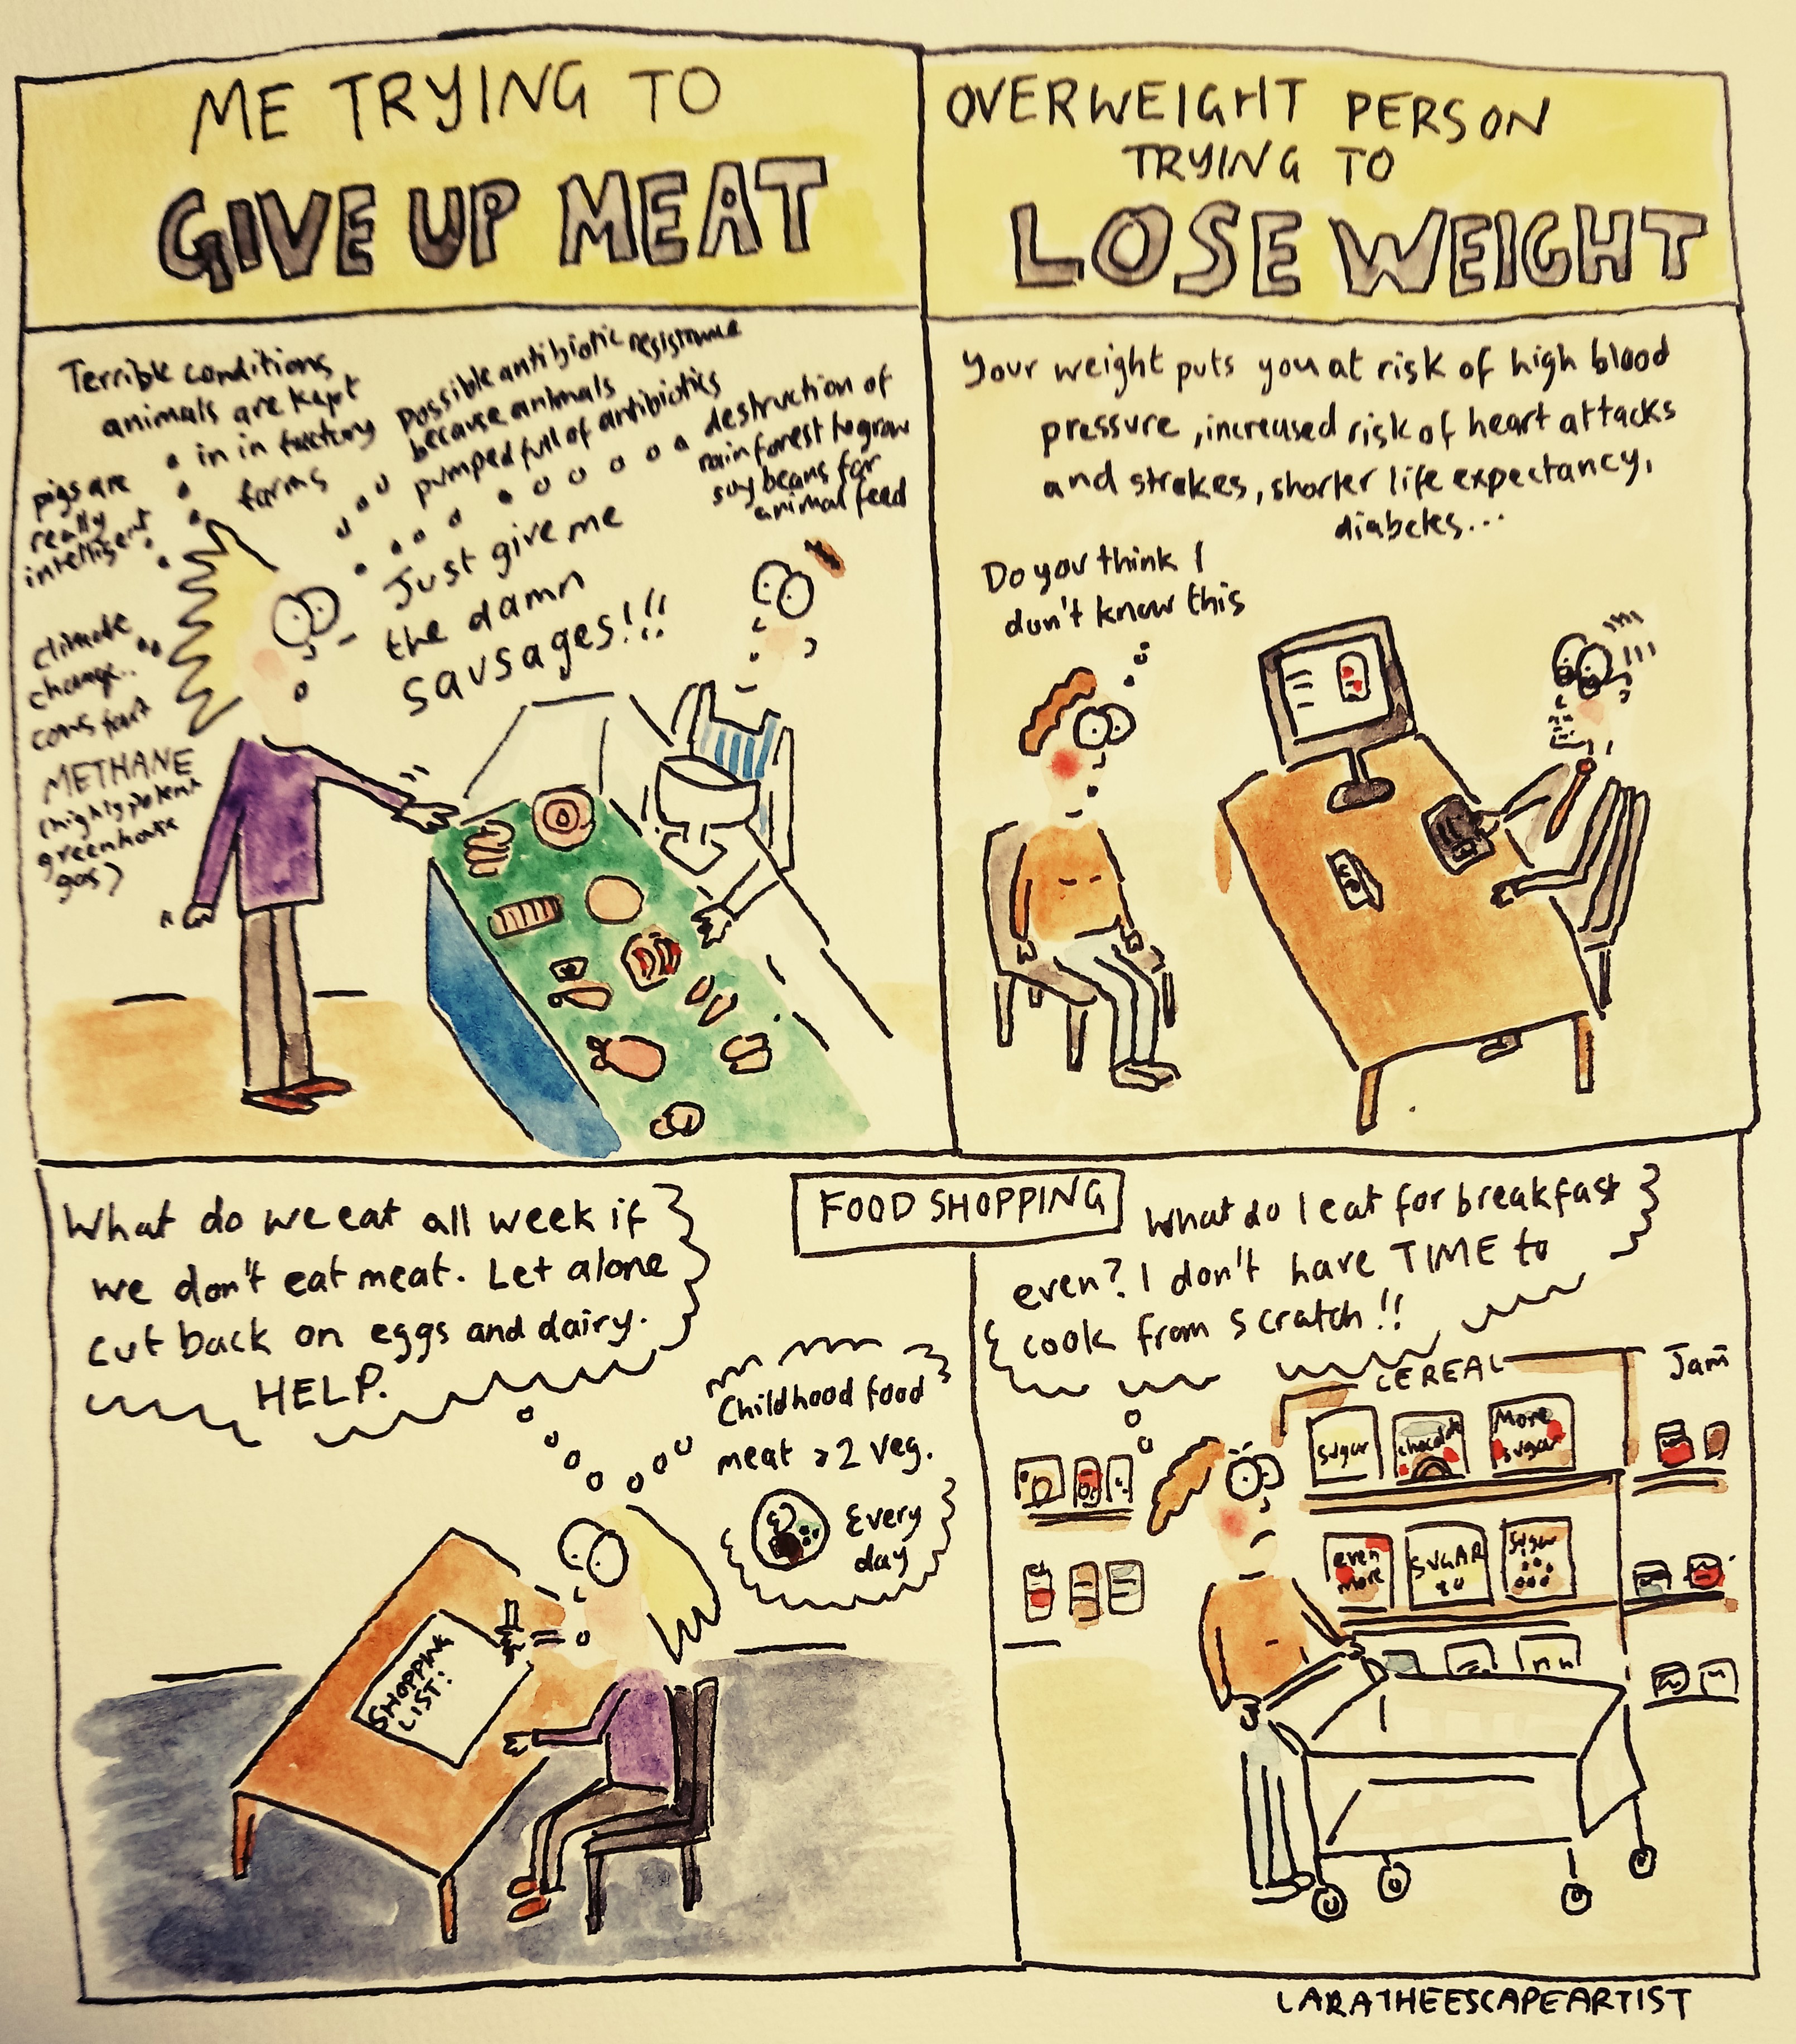 ME TRYING TO
GIVE UP MEAT
OVERWEIGHT PERSON
TRYING TO
LOSE WEIGHT
Terrible conditions
animals are kept
in in factory
farms
possible antibiotic resistance
because animals
pumped full of antibiotics
destruction of
rainforest to grow
soy beans for
animal feed
pigs are
really
intelligent
climate
change..
cows fart
METHANE
(highly potent
greenhouse
gas)
Just give me
the damn
sausages!!!
Your weight puts you at risk of high blood
pressure, increased risk of heart attacks
and strokes, shorter life expectancy,
diabetes...
Do you think I
don't know this
What do we eat all week if
we don't eat meat. Let alone
cut back on eggs and dairy.
HELP.
Childhood food
meat & 2 veg.
Every
day
SHOPPING
LIST:
FOOD SHOPPING
What do I eat for breakfast
even? I don't have TIME to
cook from scratch!!
CEREAL
Jam
Sugar
chocolate
More
sugar
even
more
SUGAR
Sugar
LARATHEESCAPEARTIST